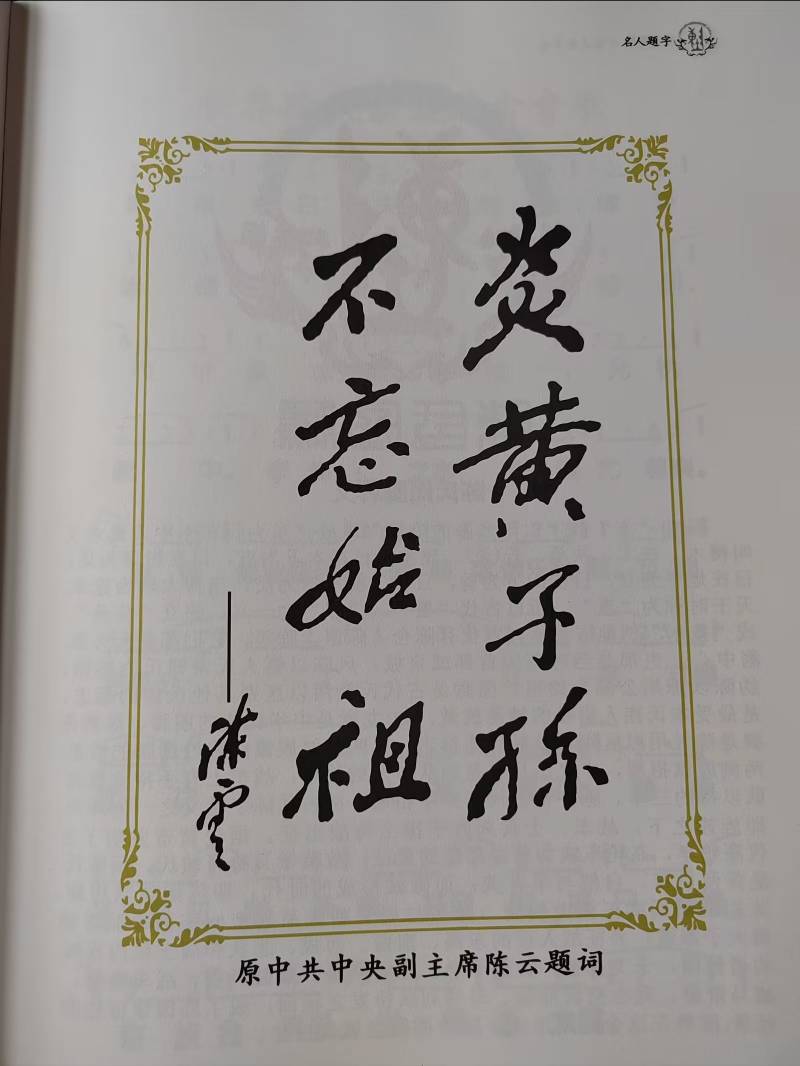 名人题字
炎黄子孙
不忘始祖
——陈雲
原中共中央副主席陈云题词